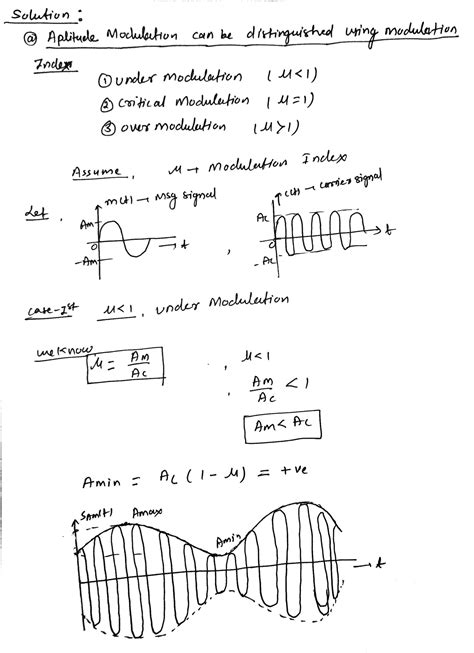 Solution :
ⓐ Aplitude Modulation can be distinguished using modulation
Index
① under modulation ( μ < 1 )
② critical modulation ( μ = 1 )
③ over modulation ( μ > 1 )
Assume, μ → Modulation Index
Let,
m(t) → Msg signal
Am
0
-Am
→ t
,
c(t) → carrier signal
Ac
0
-Ac
→ t
case-Ist μ < 1 , under Modulation
we know,
μ = Am / Ac , μ < 1
, Am / Ac < 1
Am < Ac
Amin = Ac ( 1 - μ ) = +ve
SAM(t) Amax
Amin
→ t